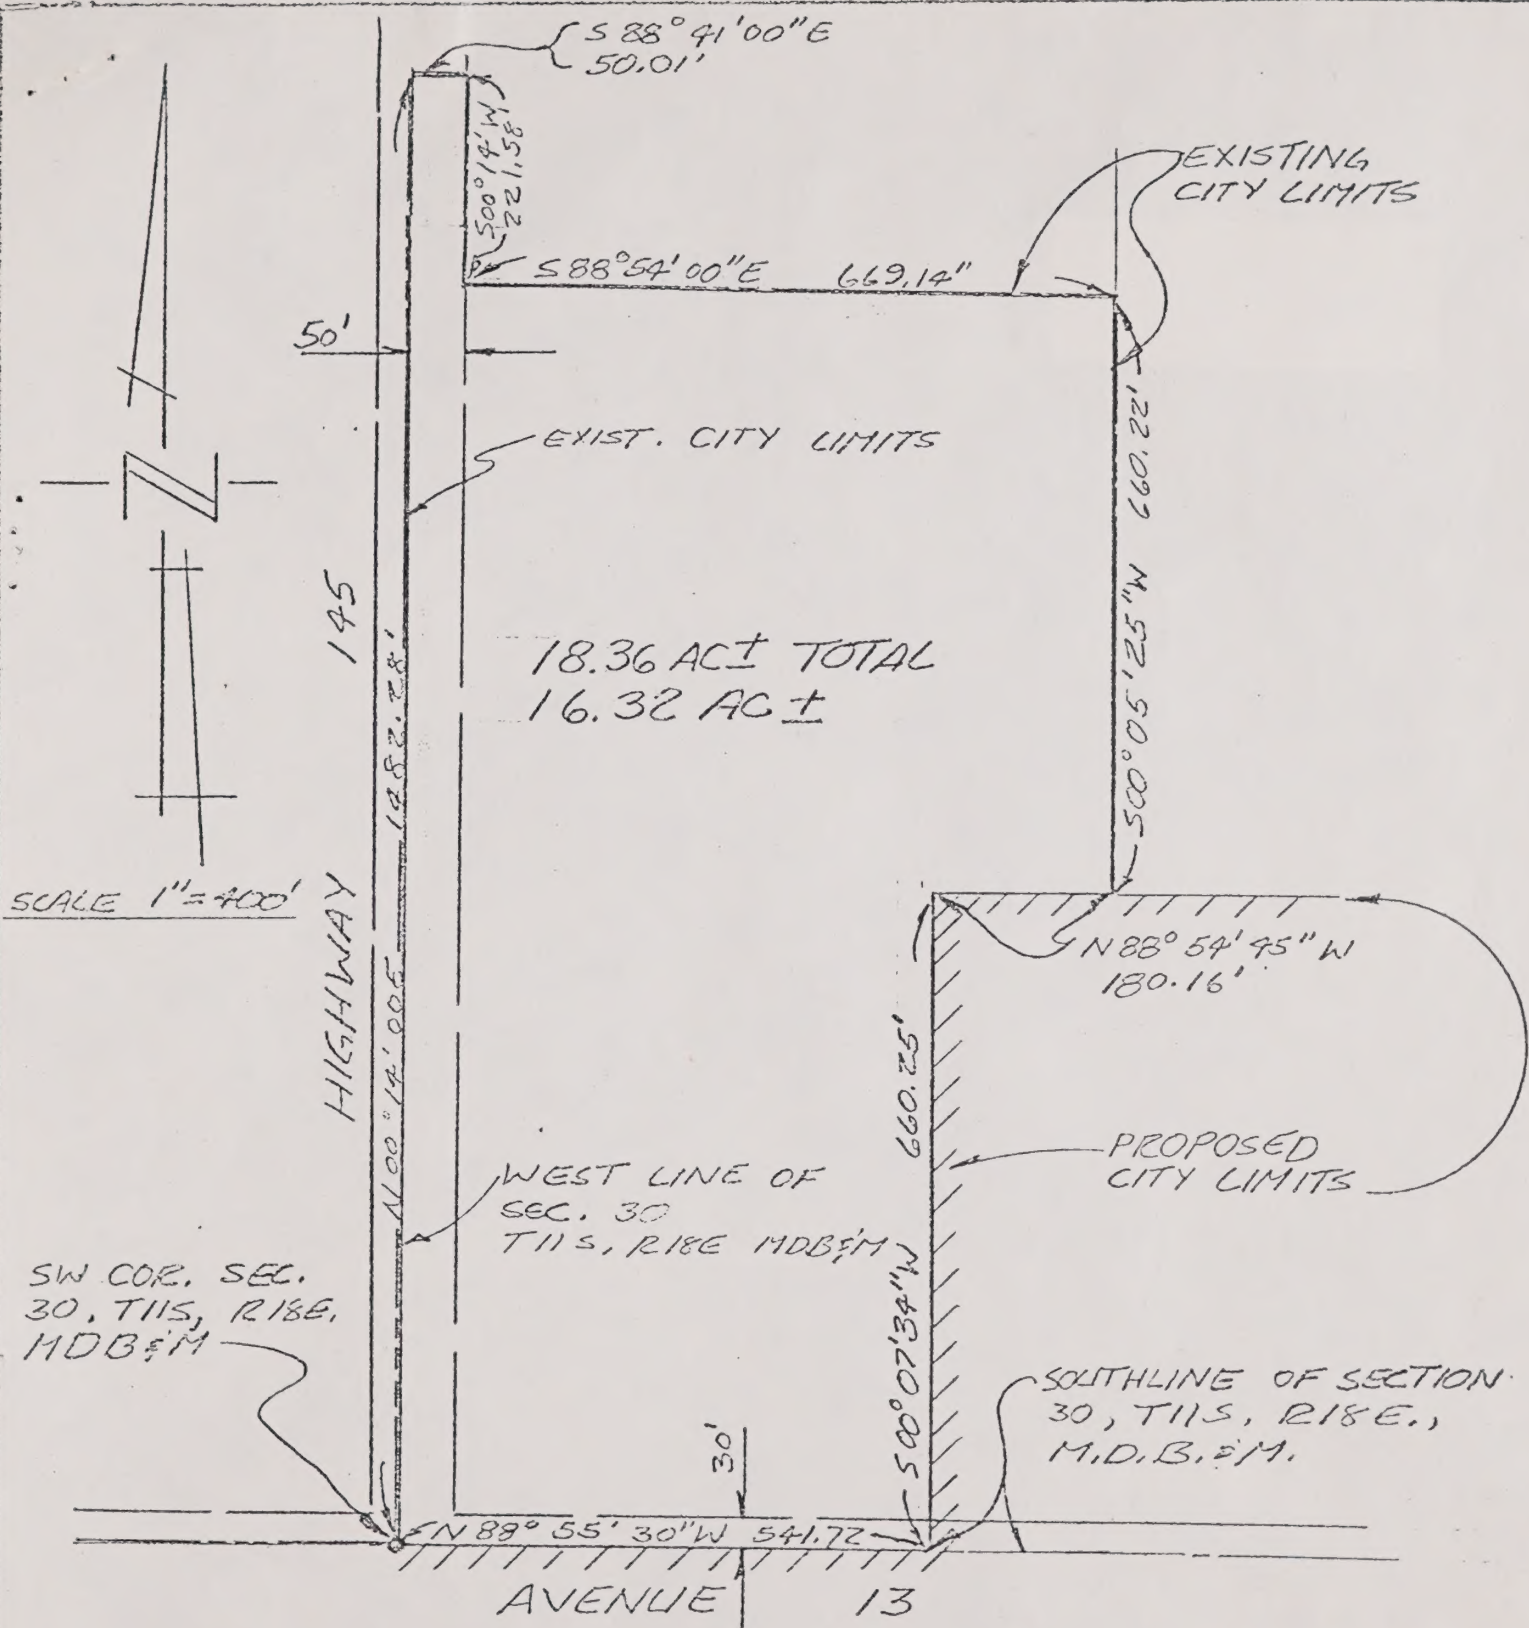 S 88° 41' 00" E
50.01'
S00° 14' W
221.58'
EXISTING
CITY LIMITS
S 88° 54' 00" E 669.14"
50'
EXIST. CITY LIMITS
S00° 05' 25" W 660.22'
145
HIGHWAY
18.36 AC± TOTAL
16.32 AC ±
N 00° 14' 00E 1482.28'
SCALE 1"=400'
N 88° 54' 45" W
180.16'
S 00° 07' 34" W 660.25'
PROPOSED
CITY LIMITS
WEST LINE OF
SEC. 30
T11S, R18E MDB&M
SW COR. SEC.
30, T11S, R18E.
MDB&M
SOUTHLINE OF SECTION
30, T11S, R18E.,
M.D.B.&M.
30'
N 88° 55' 30" W 541.72
AVENUE 13